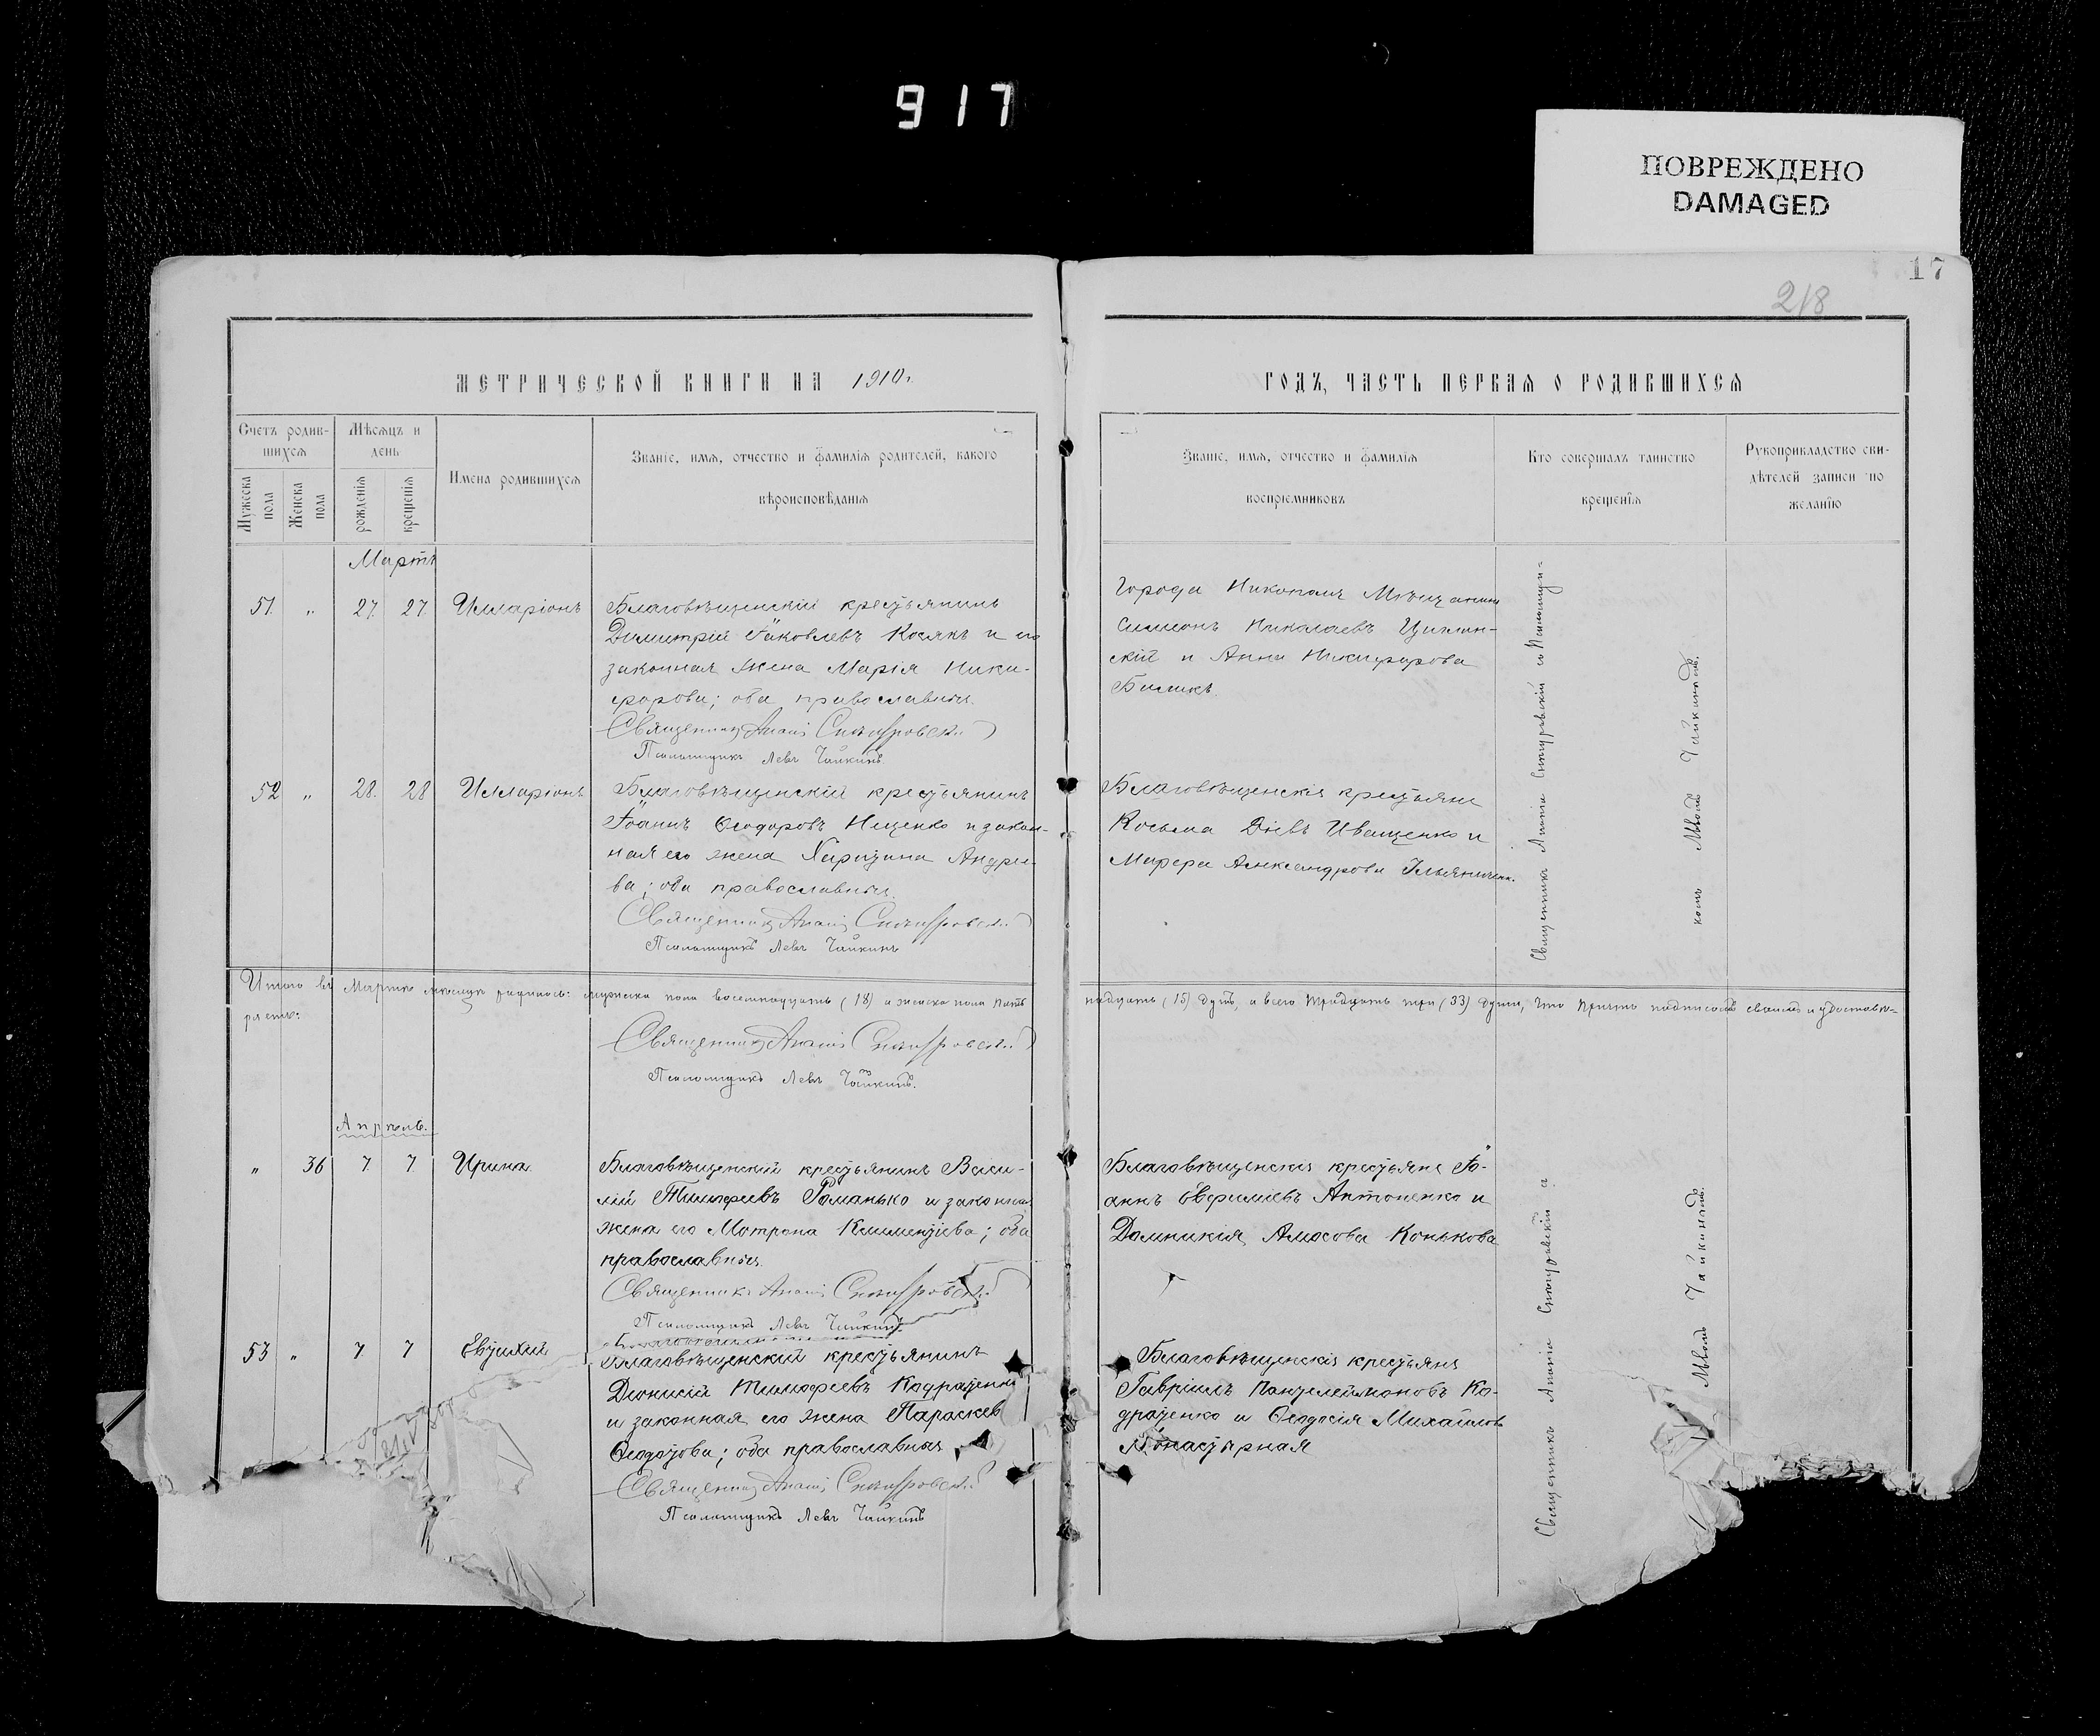 917
ПОВРЕЖДЕНО
DAMAGED
17
218
МЕТРИЧЕСКОЙ КНИГИ НА 1910г.
ГОДЪ, ЧАСТЬ ПЕРВАЯ О РОДИВШИХСЯ
Счетъ родив-
шихся
Мужеска пола
Женска пола
Мѣсяцъ и
день
рожденія
крещенія
Имена родившихся
Званіе, имя, отчество и фамилія родителей, какого
вѣроисповѣданія
Званіе, имя, отчество и фамилія
воспріемниковъ
Кто совершалъ таинство
крещенія
Рукоприкладство сви-
дѣтелей записи по
желанію
Мартъ
51 " 27 27 Илларіонъ
Благовѣщенскій крестьянинъ
Димитрій Іаковлевъ Косякъ и его
законная жена Марія Ники-
форова; оба православные.
Священникъ Ананій
Псаломщикъ Левъ Чайкинъ.
Города Никополя Мѣщанинъ
Симеонъ Николаевъ
скій и Анна Никифорова
Билыкъ.
52 " 28 28 Илларіонъ
Благовѣщенскій крестьянинъ
Іоаннъ Ѳеодоровъ Ищенко и закон-
ная его жена Харитина Андрее-
ва; оба православные.
Священникъ Ананій
Псаломщикъ Левъ Чайкинъ
Благовѣщенскіе крестьяне
Косьма Діевъ Иващенко и
Марфа Александрова
Священникъ Ананій и Псаломщи-
комъ Львомъ Чайкинымъ.
Итого въ Мартѣ мѣсяцѣ родилось: мужеска пола восемнадцать (18) и женска пола пят-
надцать (15) душъ, а всего тридцать три (33) души, что Причтъ подписомъ своимъ и удостовѣ-
ряетъ:
Священникъ Ананій
Псаломщикъ Левъ Чайкинъ.
Апрѣль.
" 36 7 7 Ирина
Благовѣщенскій крестьянинъ Васи-
лій Тимофеевъ Романько и законная
жена его Мотрона Климентіева; оба
православные.
Священникъ Ананій
Псаломщикъ Левъ Чайкинъ.
Благовѣщенскіе крестьяне Іо-
аннъ Евфиміевъ Антоненко и
Домникія Амосова Конькова
53 " 7 7 Евтихій
Благовѣщенскій крестьянинъ
Діонисій Тимофеевъ Кодраченко
и законная его жена Параскев
Ѳеодотова; оба православные
Священникъ Ананій
Псаломщикъ Левъ Чайкинъ
Благовѣщенскіе крестьяне
Гавріилъ Пантелеймоновъ Ко-
драченко и Ѳеодосія Михайлов
Монастырная
Священникъ Ананій
Львомъ Чайкинымъ.